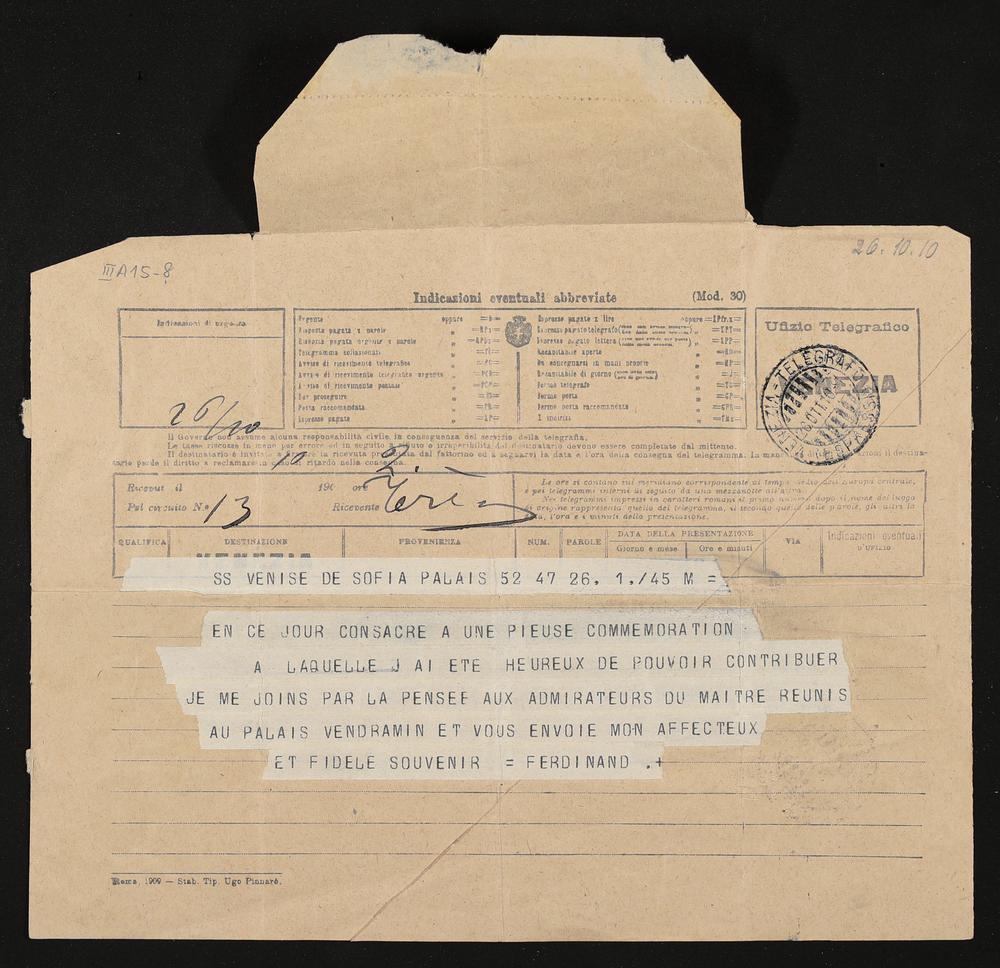 26.10.10
III A15-8
Indicazioni eventuali abbreviate (Mod. 30)
Indicazioni di urgenza
Urgente oppure =D=
Risposta pagata x parole
Risposta pagata urgente x parole
Telegramma collazionati
Avviso di ricevimento telegrafico
Avviso di ricevimento telegrafico urgente
Avviso di ricevimento postale
Far proseguire
Posta raccomandata
Espresso pagato
Espresso pagato x lire
Espresso pagato telegrafo
Espresso pagato lettera
Recapitabile aperto
Da consegnarsi in mani proprie
Recapitabile di giorno
Fermo telegrafo
Fermo posta
Fermo posta raccomandata
X indirizzi
Ufizio Telegrafico
VENEZIA
26/10
Il Governo non assume alcuna responsabilità civile in conseguenza del servizio della telegrafia.
Le tasse riscosse in meno per errore ed in seguito a rifiuto o irreperibilità del destinatario devono essere completate dal mittente.
Ricevut il 190 ore
Pel circuito N.º 13 Ricevente
Le ore si contano sul meridiano corrispondente al tempo medio dell'Europa centrale,
e pei telegrammi interni di seguito da una mezzanotte all'altra.
Nei telegrammi impressi in caratteri romani il primo numero dopo il nome del luogo
di origine rappresenta quello del telegramma, il secondo quello delle parole, gli altri la
data, l'ora e i minuti della presentazione.
QUALIFICA DESTINAZIONE PROVENIENZA NUM. PAROLE DATA DELLA PRESENTAZIONE VIA Indicazioni eventuali d'uffizio
Giorno e mese Ore e minuti
VENEZIA
SS VENISE DE SOFIA PALAIS 52 47 26. 1./45 M =
EN CE JOUR CONSACRE A UNE PIEUSE COMMEMORATION
A LAQUELLE J AI ETE HEUREUX DE POUVOIR CONTRIBUER
JE ME JOINS PAR LA PENSEE AUX ADMIRATEURS DU MAITRE REUNIS
AU PALAIS VENDRAMIN ET VOUS ENVOIE MON AFFECTEUX
ET FIDELE SOUVENIR = FERDINAND .+
Roma, 1909 — Stab. Tip. Ugo Pinnarò.